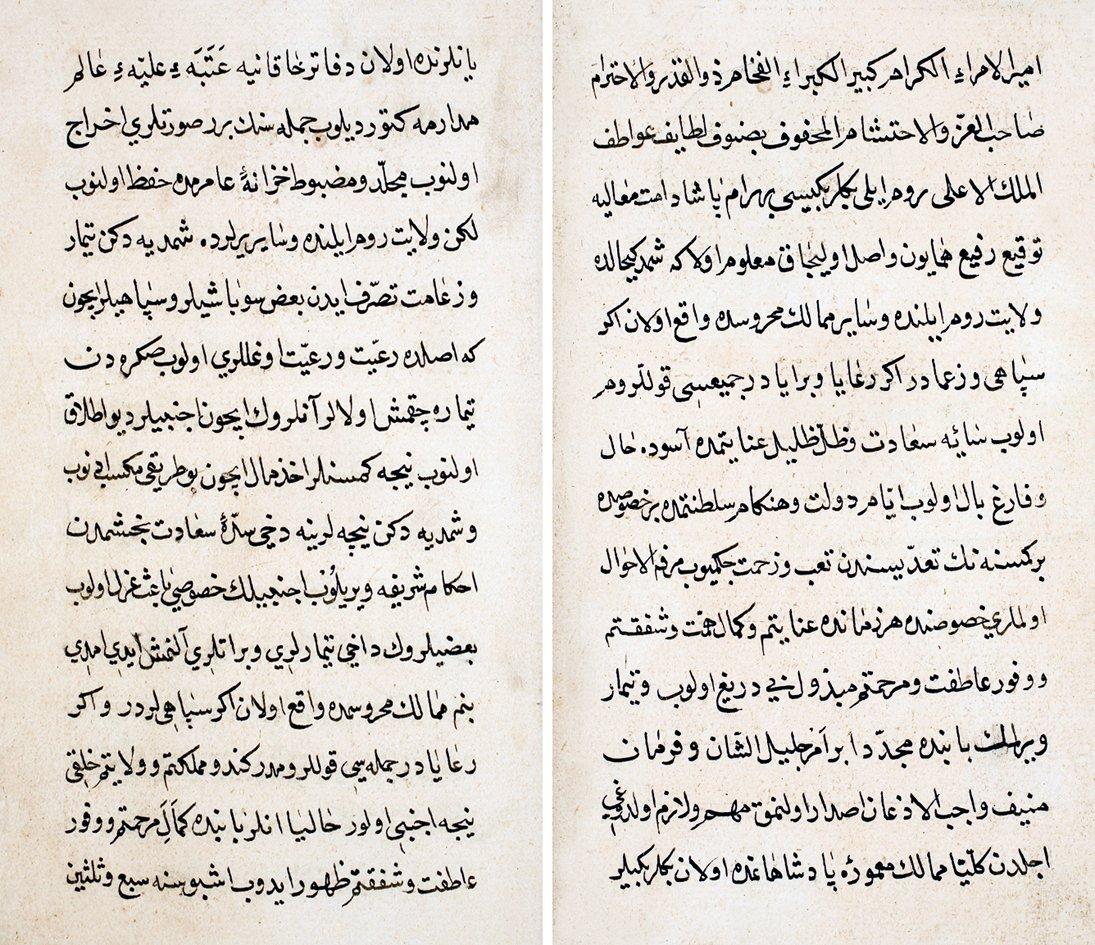 امير الامراء الكرام كبير الكبراء الفخام ذو القدر والاحترام
صاحب العز والاحتشام المحفوف بصنوف لطايف عواطف
الملك الاعلى روم ايلى بكلربكيسى بهرام پاشا دامت معاليه
توقيع رفيع همايون واصل اوليجاق معلوم اولا كه شمديكيحالده
ولايت روم ايلنده وساير ممالك محروسده واقع اولان اكر
سپاهى وزعما در اكر رعايا وبرايا در جميعيسى قوللروم
اولوب سائه سعادت وظل ظليل عنايتمده آسوده حال
وفارغ بال اولوب ايام دولت وهنكام سلطنتمده بر خصوصده
بر كمسنه نك تعديسندن تعب وزحمت چكميوب مرفه الاحوال
اولملري خصوصنده هر زمانده عنايتم وكمال وشفقتم
ووفور عاطفت ومرحمتم مبذول بي دريغ اولوب وتيمار
وبراتلري بابنده مجددا بر امر جليل الشان وفرمان
منيف واجب الاذعان اصدار اولنمق مهم ولازم اولدوغي
اجلدن كليّا ممالك معمورۀ پادشاهانمده اولان بكلربكيلر
يانلرنده اولان دفاتر خاقانيه عَتَبَه ء عليّه ء عالم
مدارمه كتورديلوب جمله سنك برر صورتلري اخراج
اولنوب مجلّد ومضبوط خزانۀ عامرمده حفظ اولنوب
لكن ولايت روم ايلنده وساير يرلرده شمديه دكن تيمار
وزعامت تصرّف ايدن بعض سوباشيلر وسپاهيلر ايچون
كه اصلده رعيّت ورعيّت اوغللري اولوب صكره دن
تيماره چقمش اولالر آنلروك ايچون اجنبيلر ديو اطلاق
اولنوب نيجه كمسنلر اخذ مال ايچون بو طريقى مكسب ايدنوب
وشمديه دكن نيچه لرينه دخى سدّۀ سعادت بخشمدن
احكام شريفه ويريلوب اجنبيلك خصوصى باعث عزل اولوب
بعضيلروك داخى تيمارلري وبراتلري آلنمش ايدي امدي
بنم ممالك محروسمده واقع اولان اكر سپاهيلر در واكر
رعايا در جمله سى قوللروم در كندو مملكتم وولايتم خلقى
نيجه اجنبى اولور حاليا انلر بابنده كمالِ مرحمتم ووفور
عاطفت وشفقتم ظهور ايدوب اشبو سنه سبع وثلثين